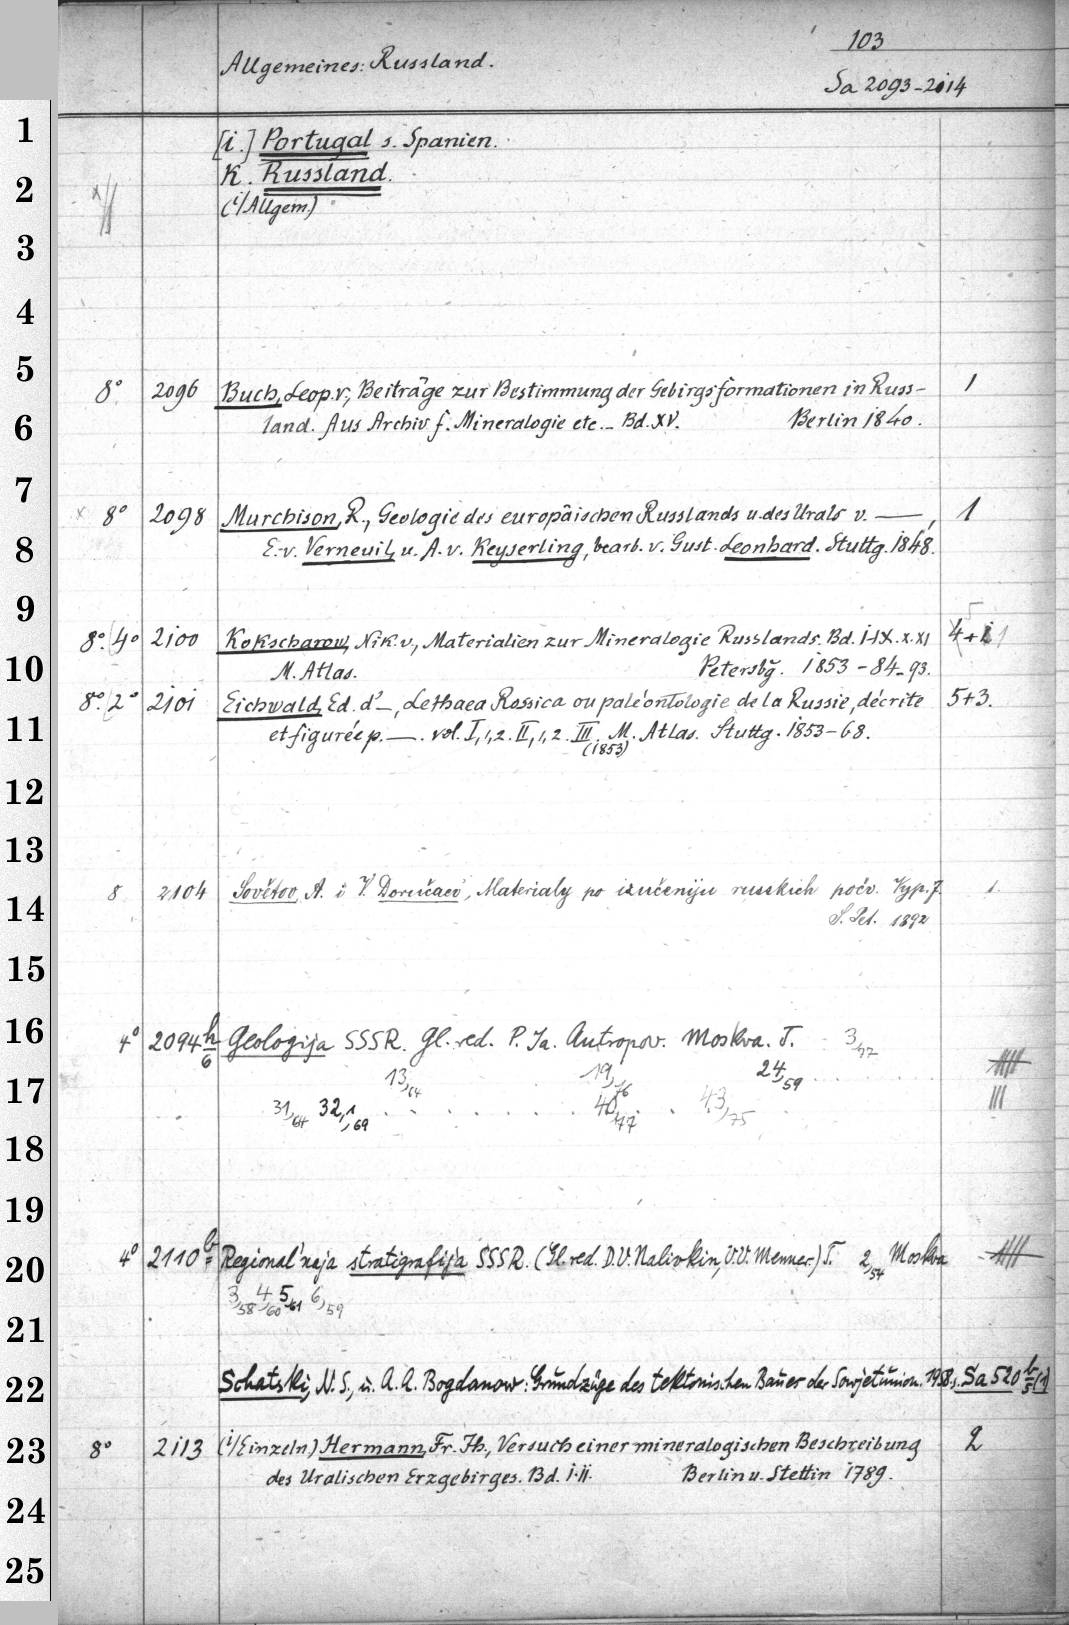 103
Allgemeines: Russland.
Sa 2093-2114
1
[i.] Portugal s. Spanien.
2
K. Russland.
(i/Allgem.)
3
4
5
8° 2096 Buch, Leop. v., Beiträge zur Bestimmung der Gebirgsformationen in Russ- 1
6
land. Aus Archiv f. Mineralogie etc.- Bd. XV. Berlin 1840.
7
8° 2098 Murchison, R., Geologie des europäischen Russlands u. des Urals v. —, 1
8
E. v. Verneuil, u. A. v. Keyserling, bearb. v. Gust. Leonhard. Stuttg. 1848.
9
8°. (4° 2100 Kokscharow, Nik. v., Materialien zur Mineralogie Russlands. Bd. I-IX. X. XI 4+1
10
M. Atlas. Petersbg. 1853-84-93.
8°. (2° 2101 Eichwald, Ed. d'—, Lethaea Rossica ou paléontologie de la Russie, décrite 5+3.
11
et figurée p. —. vol. I,1,2. II,1,2. III. M. Atlas. Stuttg. 1853-68.
(1853)
12
13
8 2104 Sovětov, A. i V. Dokučaev, Materialy po izučeniju russkich počv. Vyp. 7. 1.
14
S. Pet. 1892
15
16
4° 2094 h/6 Geologija SSSR. Gl. red. P. Ja. Antropov. Moskva. T. 3,47
13,64 19,76 24,59
17
31,64 32,1,69 40,77 43,75
18
19
4° 2110 b Regional'naja stratigrafija SSSR. (Gl. red. D. V. Nalivkin, V. V. Menner.) T. 2,54 Moskva
20
3,58 4,60 5,61 6,59
21
22
Schatski, N. S., u. A. A. Bogdanow: Grundzüge des tektonischen Baues der Sowjetunion. 1958. s. Sa 520 b/5 (1)
23
8° 2113 (i/Einzeln.) Hermann, Fr. Th., Versuch einer mineralogischen Beschreibung 2
des Uralischen Erzgebirges. Bd. I.II. Berlin u. Stettin 1789.
24
25